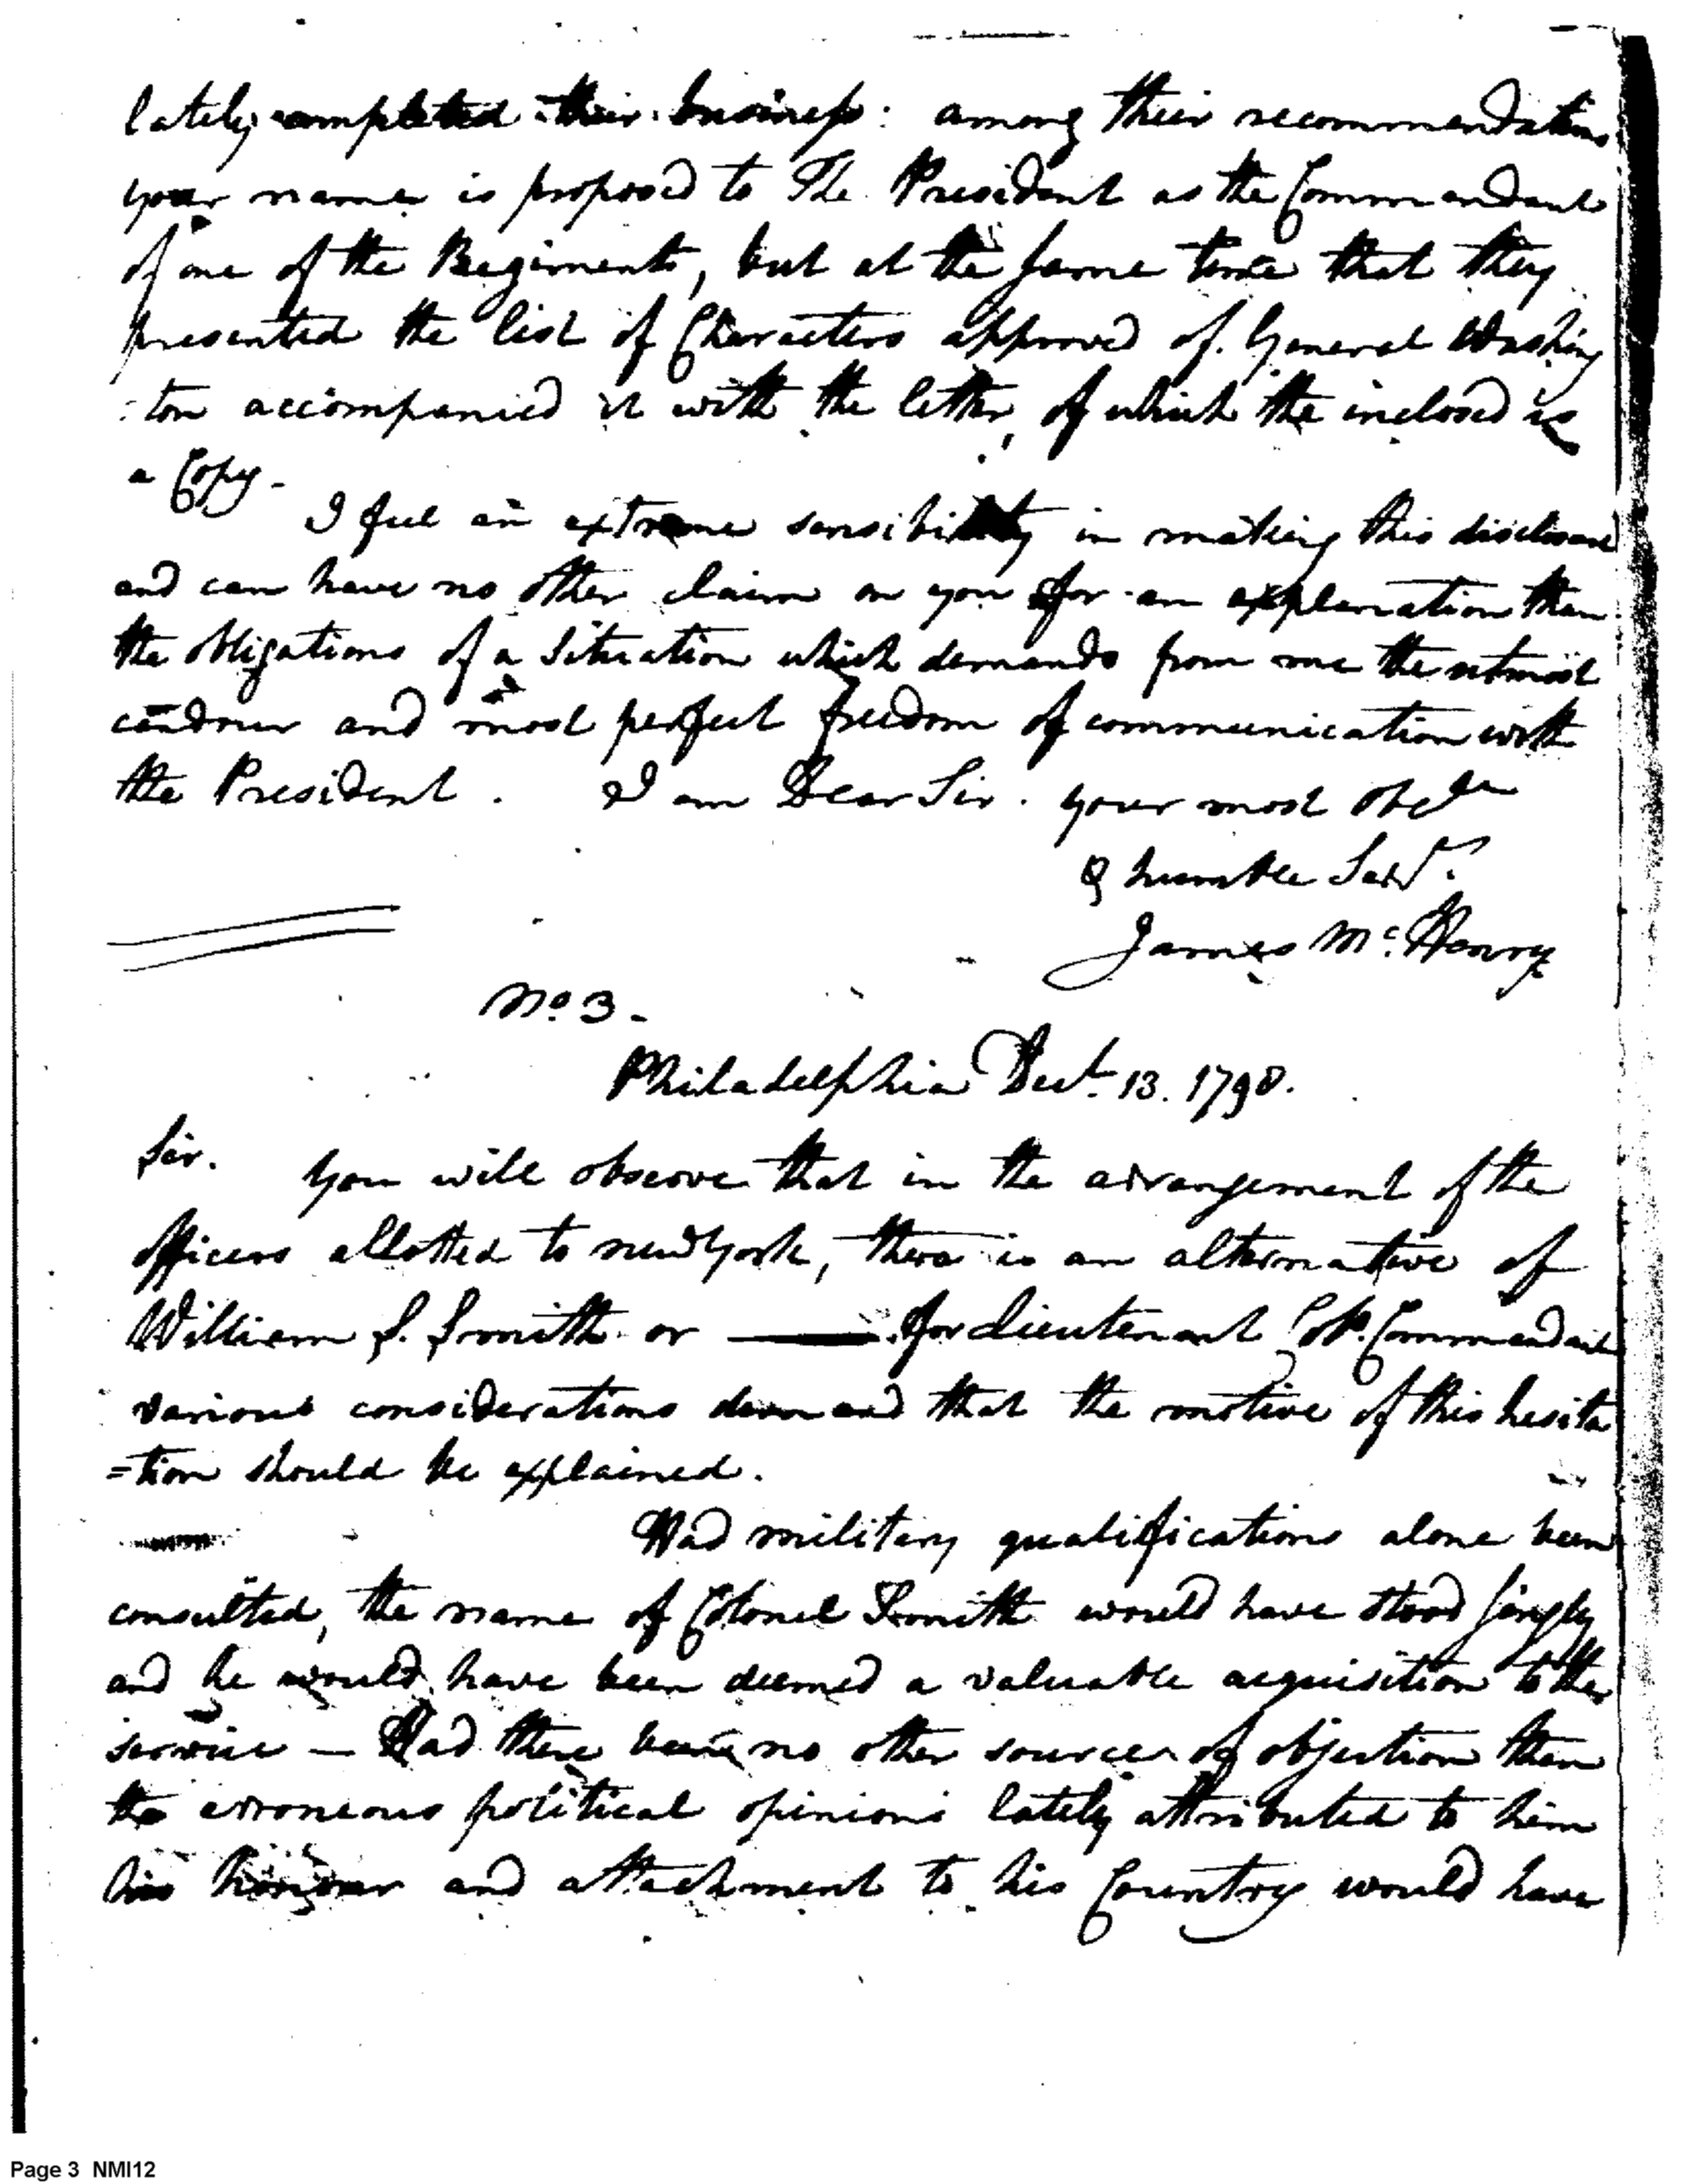 lately completed their business: among their recommendations
your name is proposed to The President as the Commandant
of one of the Regiments, but at the same time that they
presented the list of Characters approved of. General Washing
-ton accompanied it with the letter, of which the inclosed is
a Copy-
I feel an extreme sensibility in making this disclosure
and can have no other claim on you for an explanation than
the obligations of a Situation which demands from me the utmost
candour and most perfect freedom of communication with
the President. I am Dear Sir. your most obedt
& humble Servt.
James McHenry
No 3.
Philadelphia Dect. 13. 1798.
Sir. You will observe that in the arrangement of the
officers allotted to new York, there is an alternative of
William S. Smith or —— for Lieutenant Col. Commandant
various considerations demand that the motive of this hesita
=tion should be explained.
Had military qualifications alone been
consulted, the name of Colonel Smith would have stood singly
and he would have been deemed a valuable acquisition to the
service — Had there been no other source of objection than
the erroneous political opinions lately attributed to him
his honour and attachment to his Country would have
Page 3 NMI12